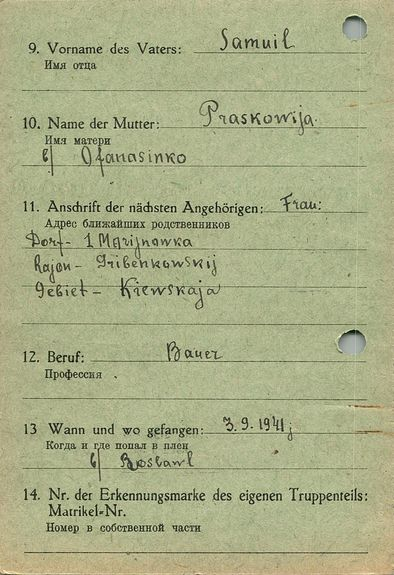 9. Vorname des Vaters: Samuil
Имя отца
10. Name der Mutter: Praskowija
Имя матери
b/ Ofanasinko
11. Anschrift der nächsten Angehörigen: Frau:
Адрес ближайших родственников
Dorf - 1 Marijnowka
Rajon - Gribenkowskij
Gebiet - Kiewskaja
12. Beruf: Bauer
Профессия
13 Wann und wo gefangen: 3.9.1941 j
Когда и где попал в плен
b/ Boslawl
14. Nr. der Erkennungsmarke des eigenen Truppenteils:
Matrikel-Nr.
Номер в собственной части